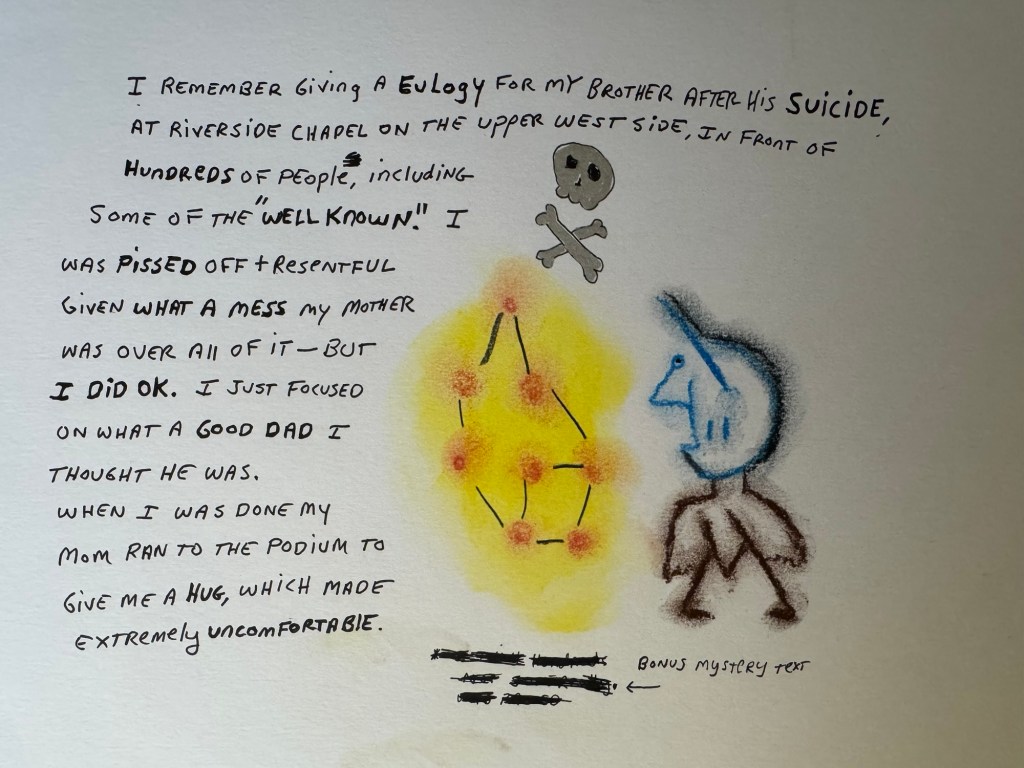 I REMEMBER GiVing A EuLogy FOR MY BROTHER AFTER His SUICIDE,
AT RIVERSIDE CHAPEL ON THE UPPER WEST SIDE, IN FRONT OF
HUNDREDS OF PEOPLE, including
SOME OF THE "WELL KNOWN." I
WAS PISSED OFF + RESENTFUL
GIVEN WHAT A MESS MY MOTHER
WAS OVER All OF IT — BUT
I DID OK. I JUST FOCUSED
ON WHAT A GOOD DAD I
THOUGHT HE WAS.
WHEN I WAS DONE MY
MOM RAN TO THE PODIUM TO
GIVE ME A HUG, WHICH MADE
EXTREMELY UNCOMFORTABLE.
BONUS MYSTERY TEXT